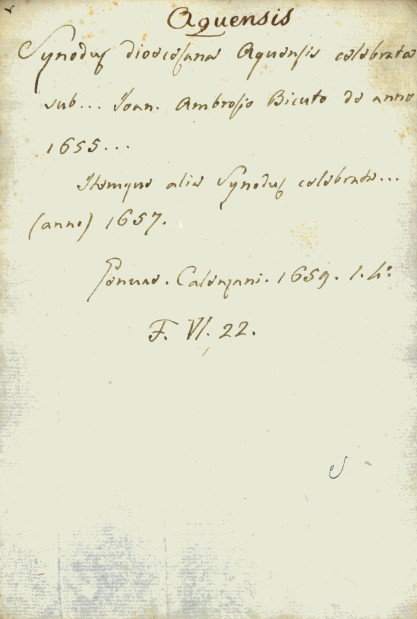 Aquensis
Synodus dioecesana Aquensis celebrata
sub... Ioan. Ambrosio Bicuto de anno
1655...
Itemque alia Synodus celebrata...
(anno) 1657.
Genuae. Calenzani. 1659. 1. 4°.
F. VI. 22.